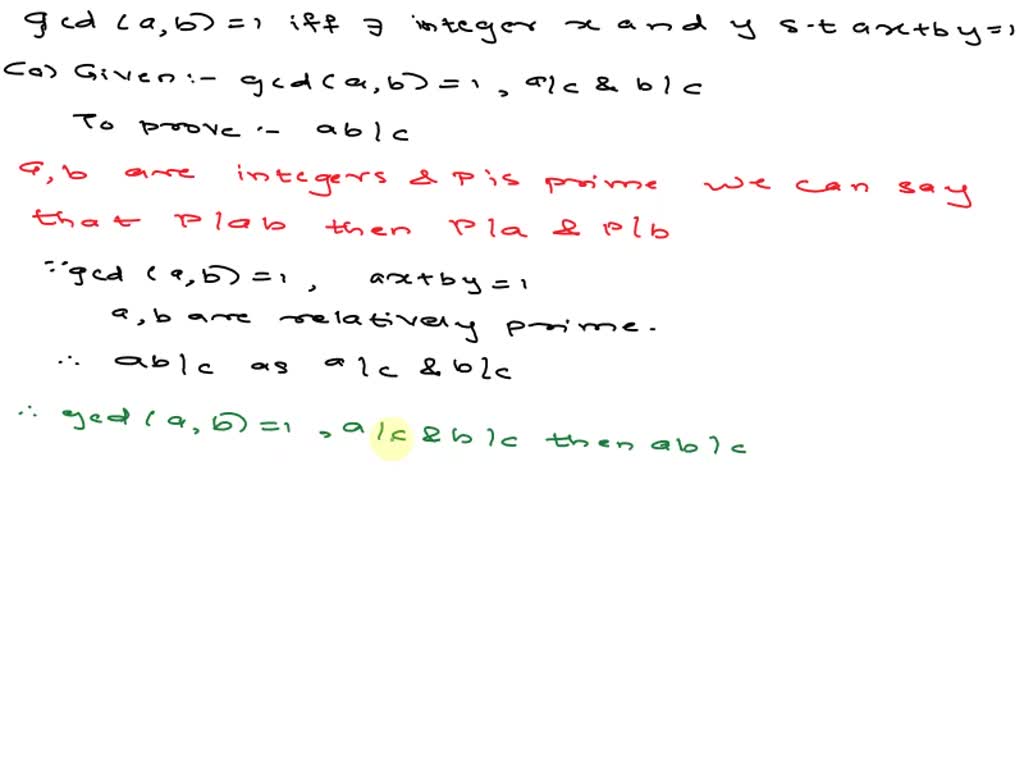 gcd (a,b) = 1 iff ∃ integer x and y s.t ax+by=1
(a) Given:- gcd(a,b) = 1, a|c & b|c
To prove :- ab|c
a,b are integers & P is prime we can say
that P|ab then P|a & P|b
∵ gcd (a,b) = 1, ax+by=1
a,b are relatively prime.
∴ ab|c as a|c & b|c
∴ gcd (a,b) = 1, a|c & b|c then ab|c